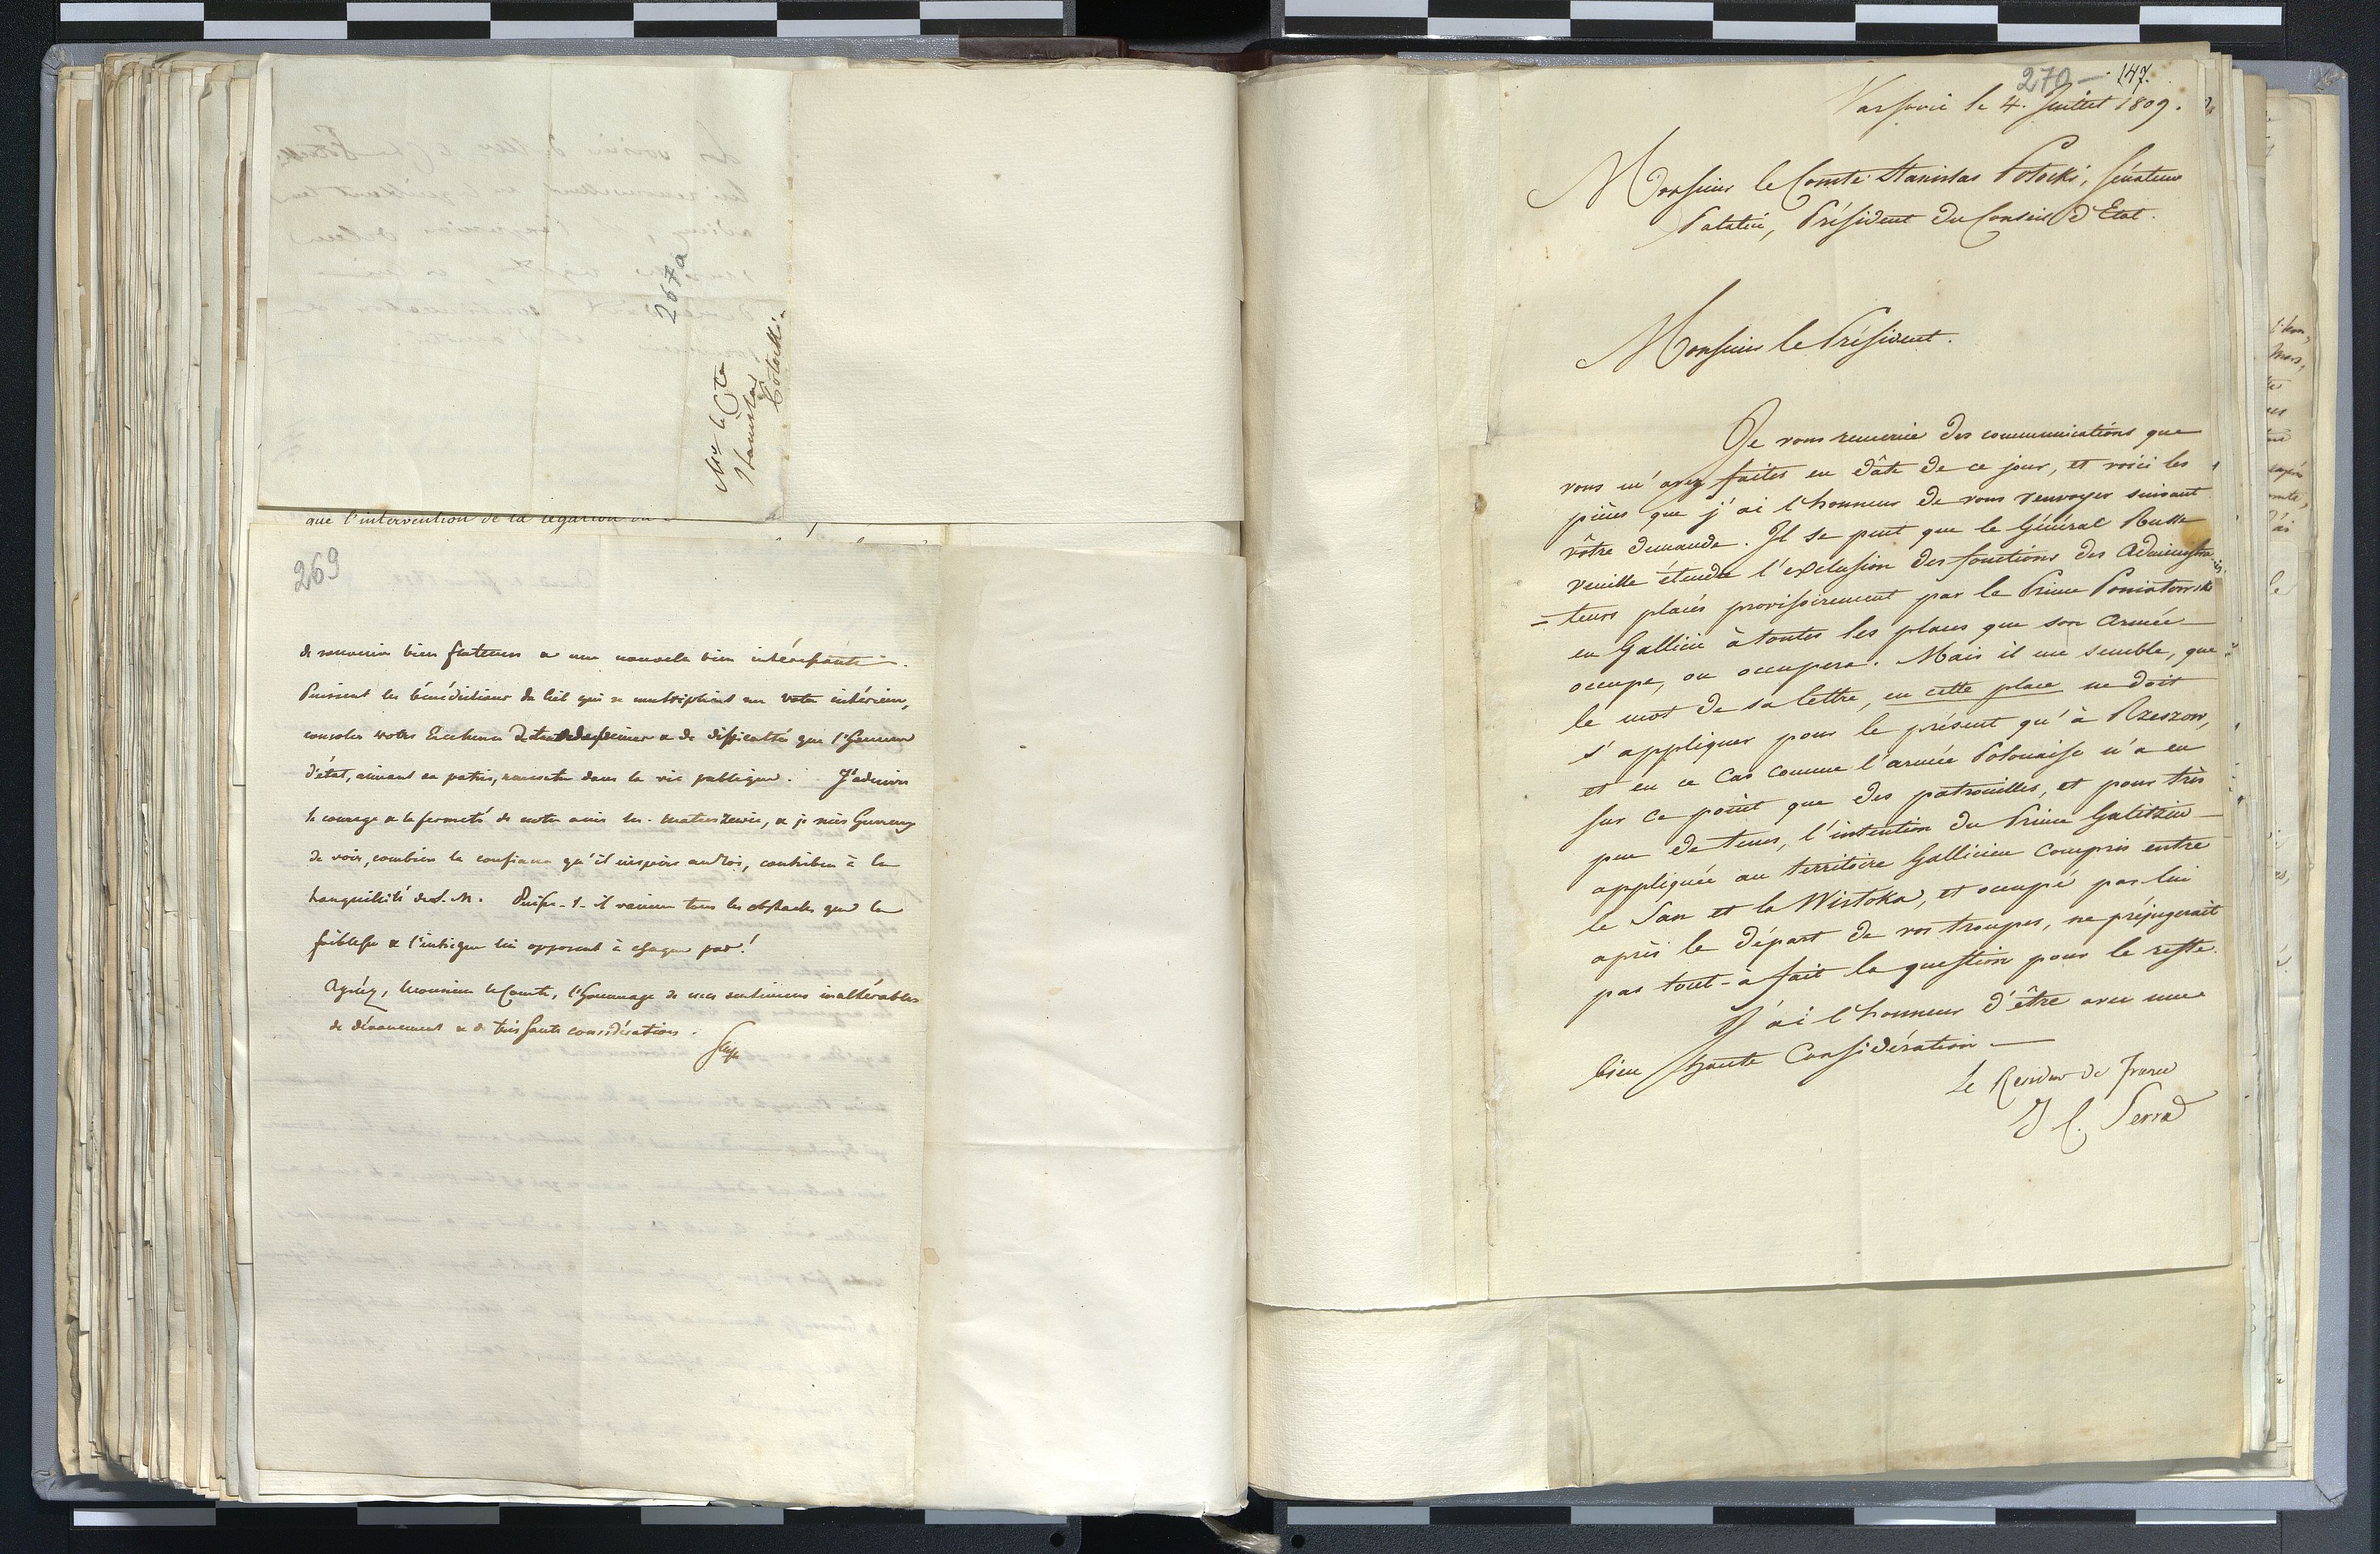 267a
Mr le Cte
Stanislas
Potocki.
que l'intervention de la légation
269
de souvenir bien flatteur & une nouvelle bien intéressante.
Puissent les bénédictions du Ciel qui se multiplient en votre intérieur,
consoler votre Excellence de tant de peines & de difficultés que l'homme
d'état, aimant sa patrie, rencontre dans la vie publique. J'admire
le courage & la fermeté de notre ami, & je suis heureux
de voir, combien la confiance qu'il inspire au Roi, contribue à la
tranquillité de S. M. Puisse-t-il vaincre tous les obstacles que la
faiblesse & l'intrigue lui opposent à chaque pas!
Agréez, Monsieur le Comte, l'hommage de mes sentimens inaltérables
de dévouement & de très haute considération.
270 - 147.
Varsovie le 4. Juillet 1809.
Monsieur le Comte Stanislas Potocki, Sénateur
Palatin, Président du Conseil d'Etat.
Monsieur le Président.
Je vous remercie des communications que
vous m'avez faites en dâte de ce jour, et voici les
pièces que j'ai l'honneur de vous renvoyer suivant
vôtre demande. Il se peut que le Général Russe
veuille étendre l'exclusion des fonctions des Administra
= teurs placés provisoirement par le Prince Poniatowski
en Gallicie à toutes les places que son Armée
occupe, ou occupera. Mais il me semble, que
le mot de sa lettre, en cette place ne doit
s'appliquer pour le présent qu'à Rzeszow,
et en ce Cas comme l'armée Polonaise n'a eu
sur ce point que des patrouilles, et pour très
peu de tems, l'intention du Prince Galitzin
appliquée au territoire Gallicien compris entre
le San et la Wistoka, et occupé par lui
après le départ de vos troupes, ne préjugerait
pas tout-à-fait la question pour le reste.
J'ai l'honneur d'être avec une
bien haute Considération
Le Résident de France
J C. Serra